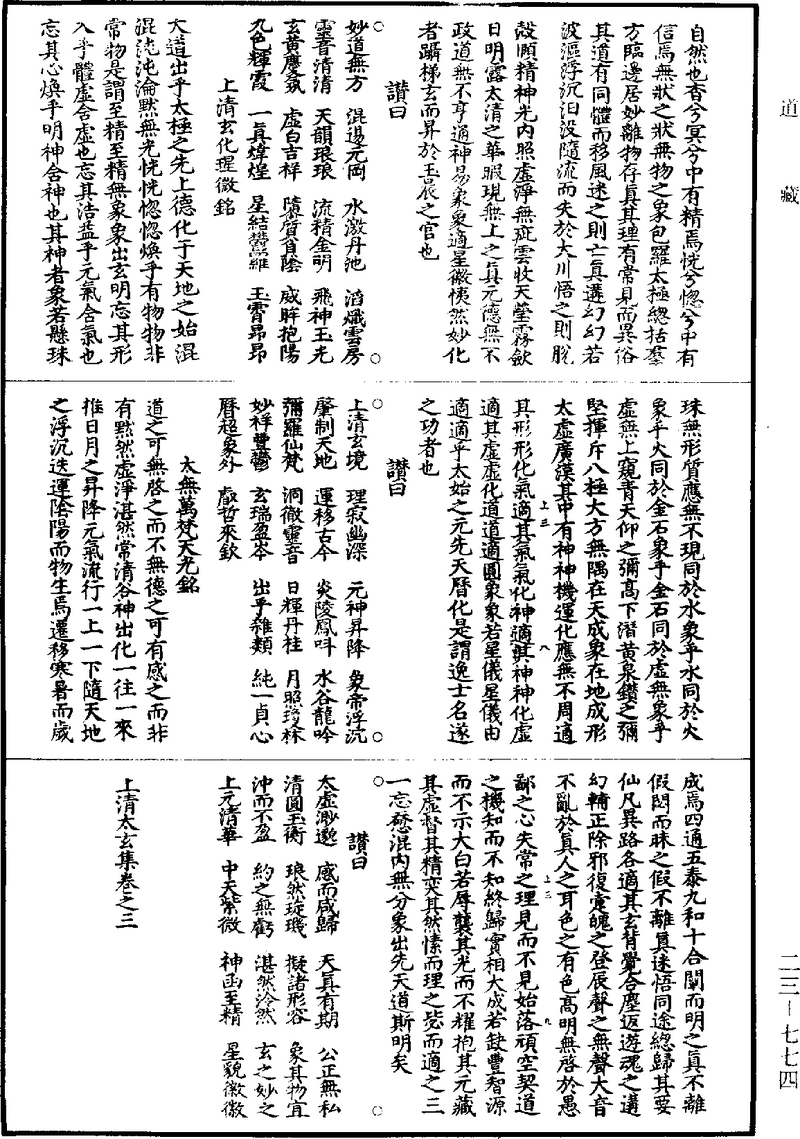 道藏
自然也杳兮冥兮中有精焉恍兮惚兮中有
信焉無狀之狀無物之象包羅太極總括羣
方臨邊居妙離物存真其理有常見而異俗
其道有同體而移風迷之則亡真邁幻幻若
波漚浮沉汨沒隨流而失於大川悟之則脫
殼頤精神光內照虛淨無疵雲收天瑩霧歛
日明露太清之華暇現無上之真元德無不
政道無不亨適神易象象適星微恍然妙化
者躡梯玄而昇於玉扆之官也
讚曰
妙道無方　混邊元罔　水激丹池　滔熾雪房
靈音清清　天韻琅琅　流精金明　飛神玉光
玄黃慶氛　虛白吉祥　隨質負陰　威眸抱陽
九色輝霞　一真煒煌　星結鬱羅　玉霄昂昂
上清玄化理微銘
大道出乎太極之先上德化于天地之始混
混沌沌淪默無光恍恍惚惚煥乎有物物非
常物是謂至精至精無象象出玄明忘其形
入乎體虛含虛也忘其浩益乎元氣含氣也
忘其心煥乎明神含神也其神者象若懸珠
珠無形質應無不現同於水象乎水同於火
象乎火同於金石象乎金石同於虛無象乎
虛無上窺青天仰之彌高下潛黃泉鑽之彌
堅揮斥八極大方無隅在天成象在地成形
太虛廣漠其中有神神機運化應無不周適
上三　八
其形形化氣適其氣氣化神適其神神化虛
適其虛虛化道道適圓象象若星儀星儀由
適適乎太始之元先天曆化是謂逸士名遂
之功者也
讚曰
上清玄境　理寂幽深　元神昇降　象帝浮沉
肇制天地　運移古今　炎陵鳳叫　水谷龍吟
彌羅仙梵　洞徹靈音　日輝丹桂　月照瓊林
妙祥豐鬱　玄瑞盈岑　出乎雜類　純一貞心
曆超象外　處哲來欽
太無萬梵天光銘
道之可無啓之而不無德之可有感之而非
有默然虛淨湛然常清谷神出化一往一來
推日月之昇降元氣流行一上一下隨天地
之浮沉迭運陰陽而物生焉遷移寒暑而歲
成焉四通五泰九和十合闡而明之真不離
假閟而昧之假不離真迷悟同途總歸其要
仙凡異路各適其玄背覺合塵返遊魂之遘
幻輔正除邪復靈魄之登辰聲之無聲大音
不亂於真人之耳色之有色高明無啓於愚
上三　九
鄙之心失常之理見而不見始落頑空契道
之機知而不知終歸實相大成若缺豐智源
而不示大白若辱襲其光而不耀抱其元藏
其虛督其精奕其然愫而理之䛂而適之三
一忘礙混內無分象出先天道斯明矣
讚曰
太虛渺邈　感而咸歸　天真有期　公正無私
清圓玉衡　琅然琁璣　擬諸形容　象其物宜
沖而不盈　約之無虧　湛然泠然　玄之妙之
上元清華　中天紫微　神函至精　星貌徽徽
上清太玄集卷之三
二三－七七四